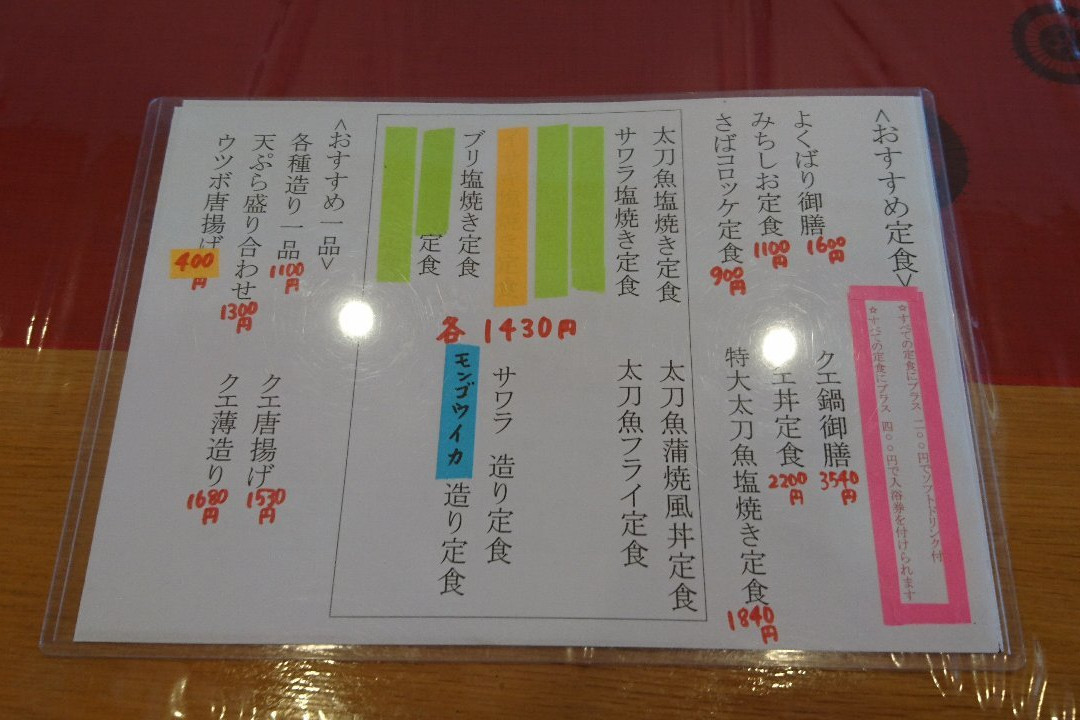 <おすすめ定食>
☆すべての定食にプラス二〇〇円でソフトドリンク付
☆すべての定食にプラス四〇〇円で入浴券を付けられます
よくばり御膳 1600円
みちしお定食 1100円
さばコロッケ定食 900円
クエ鍋御膳 3540円
エ丼定食 2200円
特大太刀魚塩焼き定食 1840円
太刀魚塩焼き定食
サワラ塩焼き定食
ブリ塩焼き定食
定食
各1430円
太刀魚蒲焼風丼定食
太刀魚フライ定食
サワラ 造り定食
モンゴウイカ 造り定食
<おすすめ一品>
各種造り一品 1100円
天ぷら盛り合わせ 1300円
ウツボ唐揚げ 400円
クエ唐揚げ 1530円
クエ薄造り 1680円